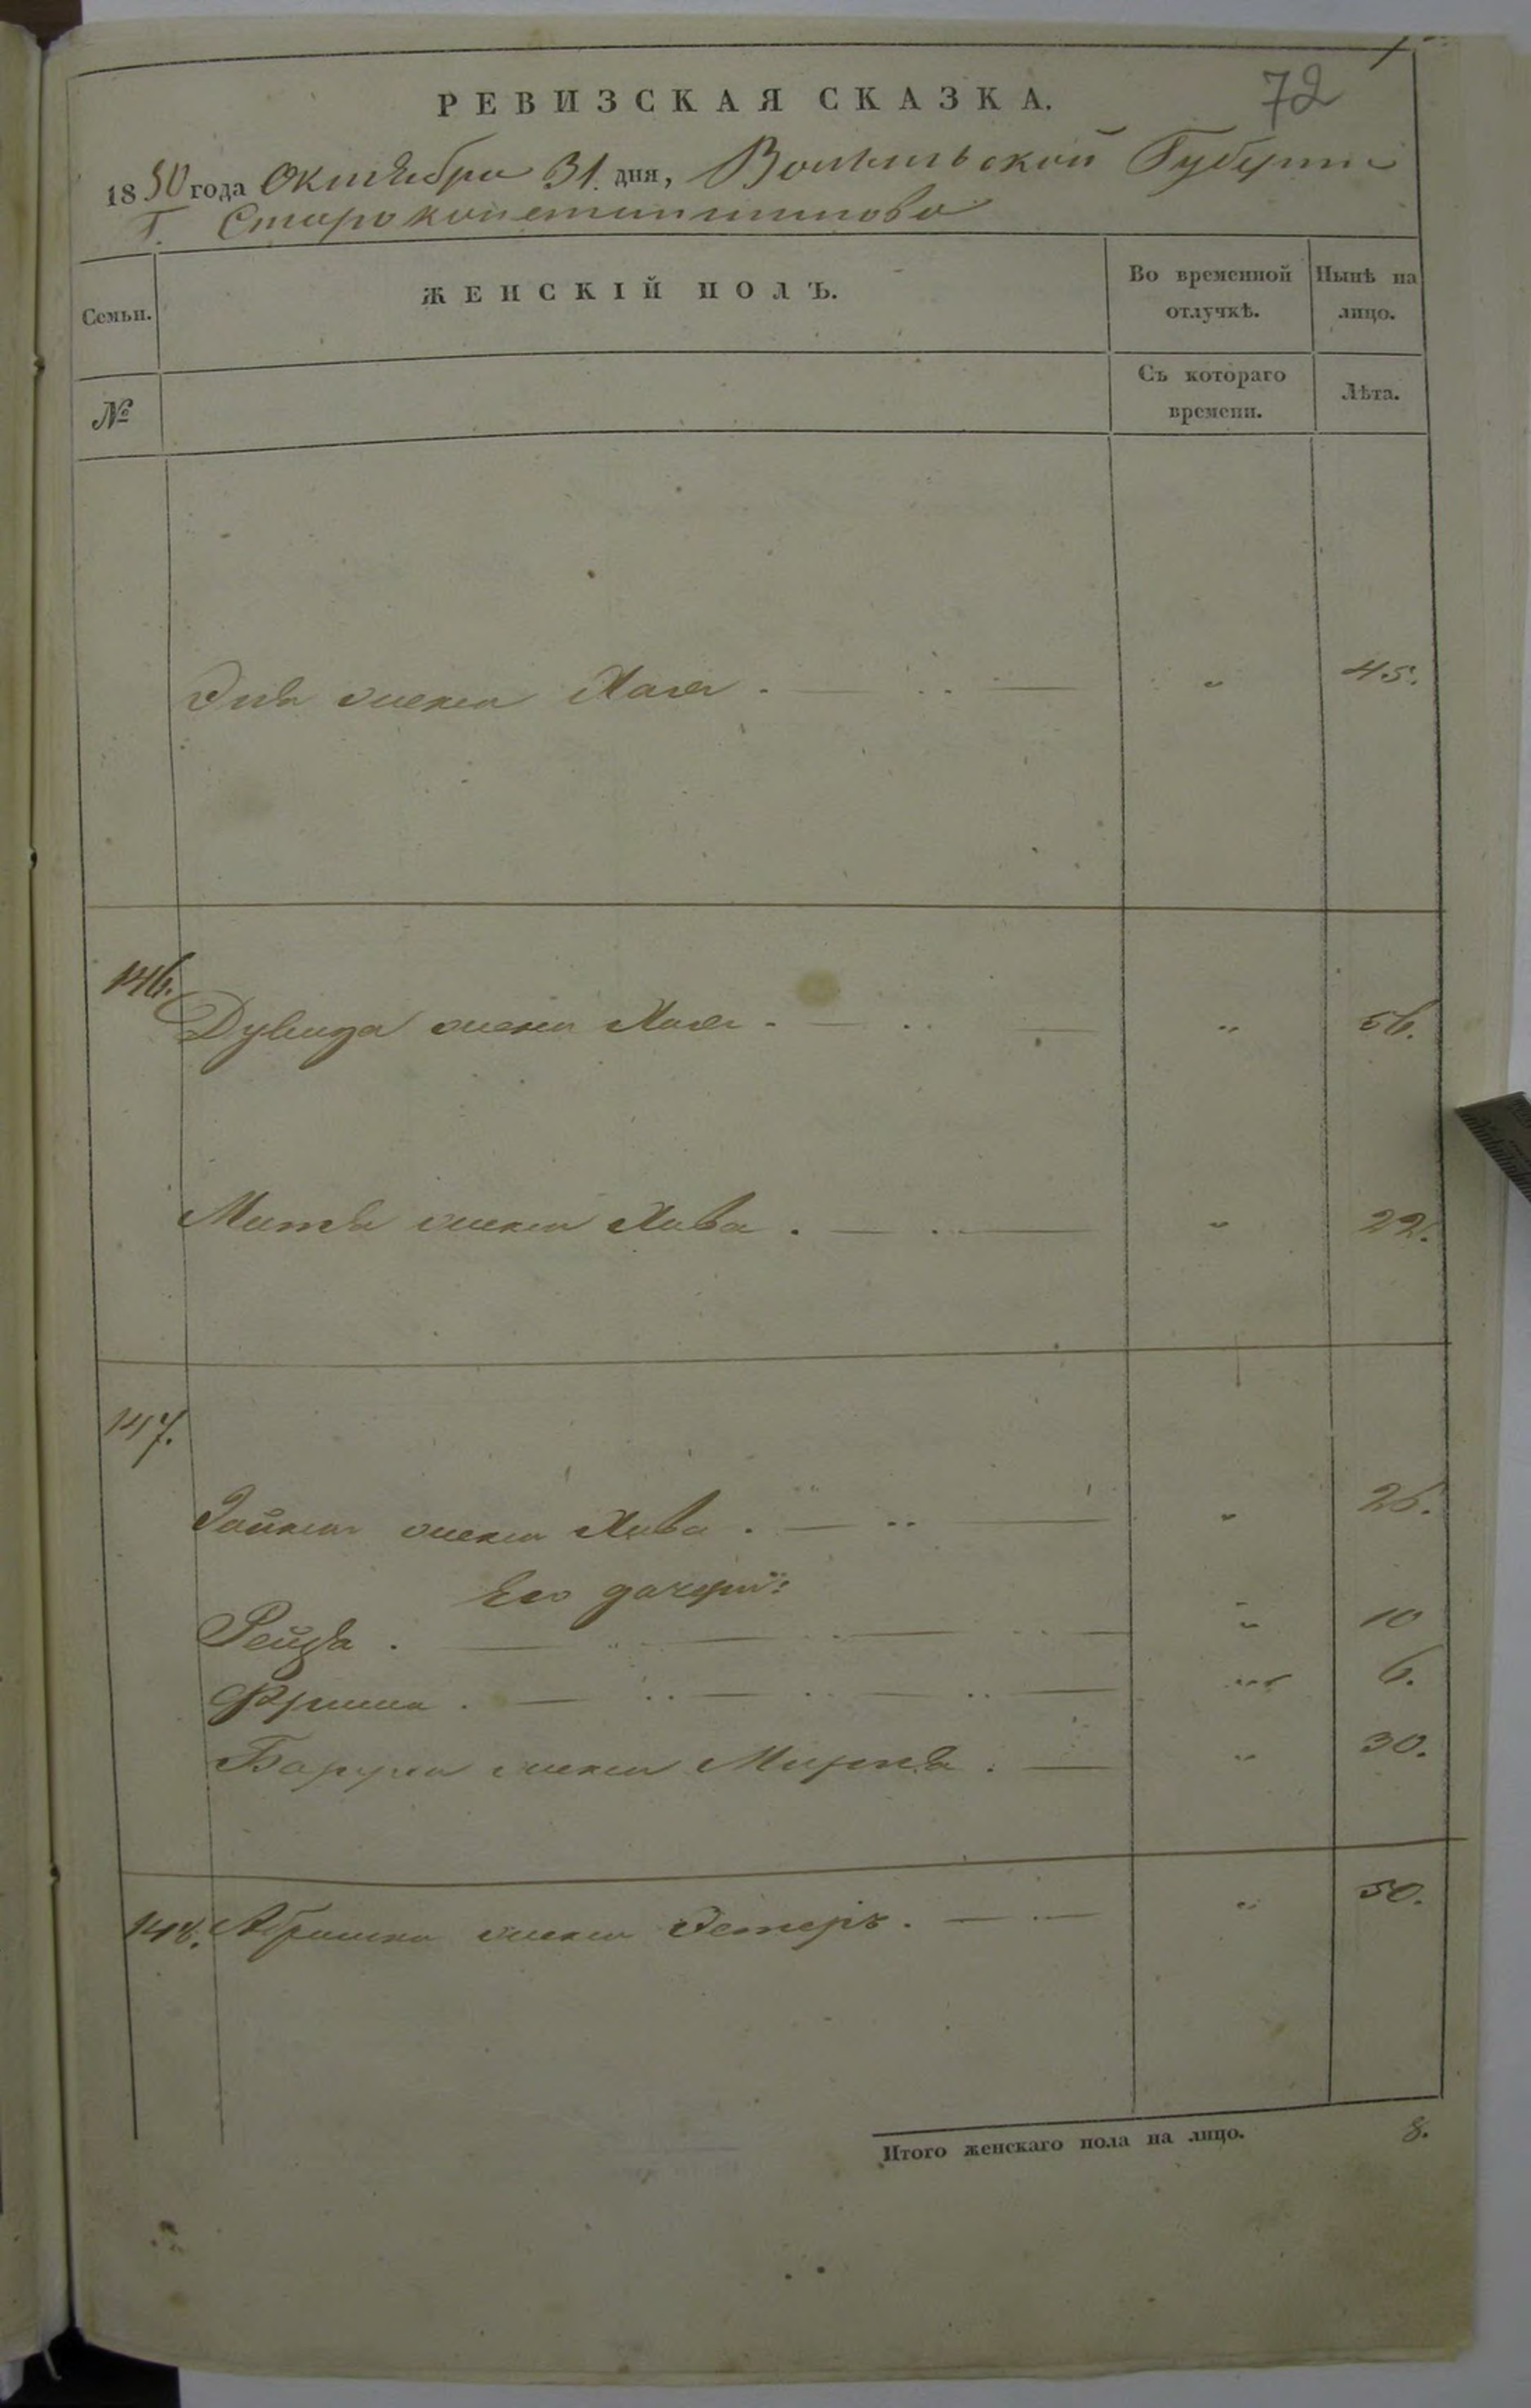 72
РЕВИЗСКАЯ СКАЗКА.
1850 года Октября 31 дня, Волынской Губернии
Г. Староконстантинова
Семьи. ЖЕНСКІЙ ПОЛЪ. Во временной отлучкѣ. Нынѣ на лицо.
№ Съ котораго времени. Лѣта.
жена Хая . — " 45.
146. Дувида жена Хая . — " 56.
жена Хава . — " 22.
147.
жена Хава . — " 26.
Его дочери:
Рейзя . — " 10
Фрима . — " 6.
Боруха жена Мирля . — " 30.
148. Абрамка жена Эстеръ . — " 50.
Итого женскаго пола на лицо. 8.